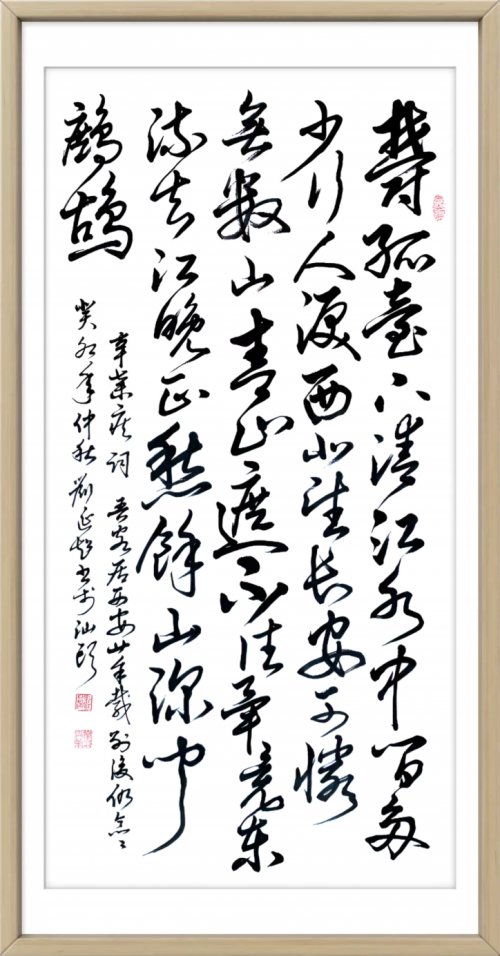 鬱孤臺下清江水中間多
少行人淚西北望長安可憐
無數山青山遮不住畢竟東
流去江晚正愁餘山深聞
鷓鴣
辛棄疾詞 吾客居西安廿年載 別後仍念〻
癸卯年仲秋 劉延書於汕頭